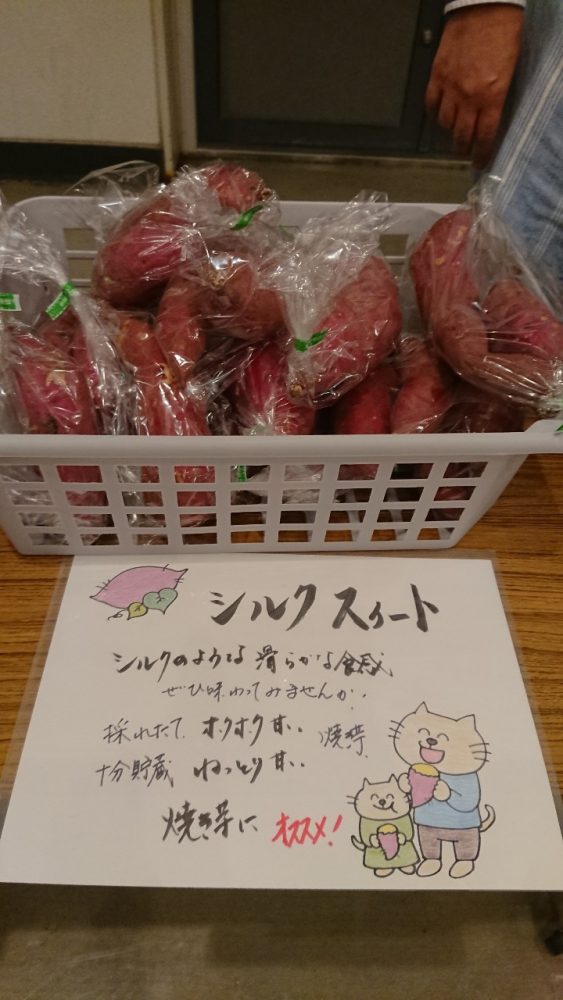 シルクスイート
シルクのような滑らかな食感
ぜひ味わってみませんか。
採れたて ホクホク甘い 焼芋
十分貯蔵 ねっとり甘い
焼き芋に オススメ!